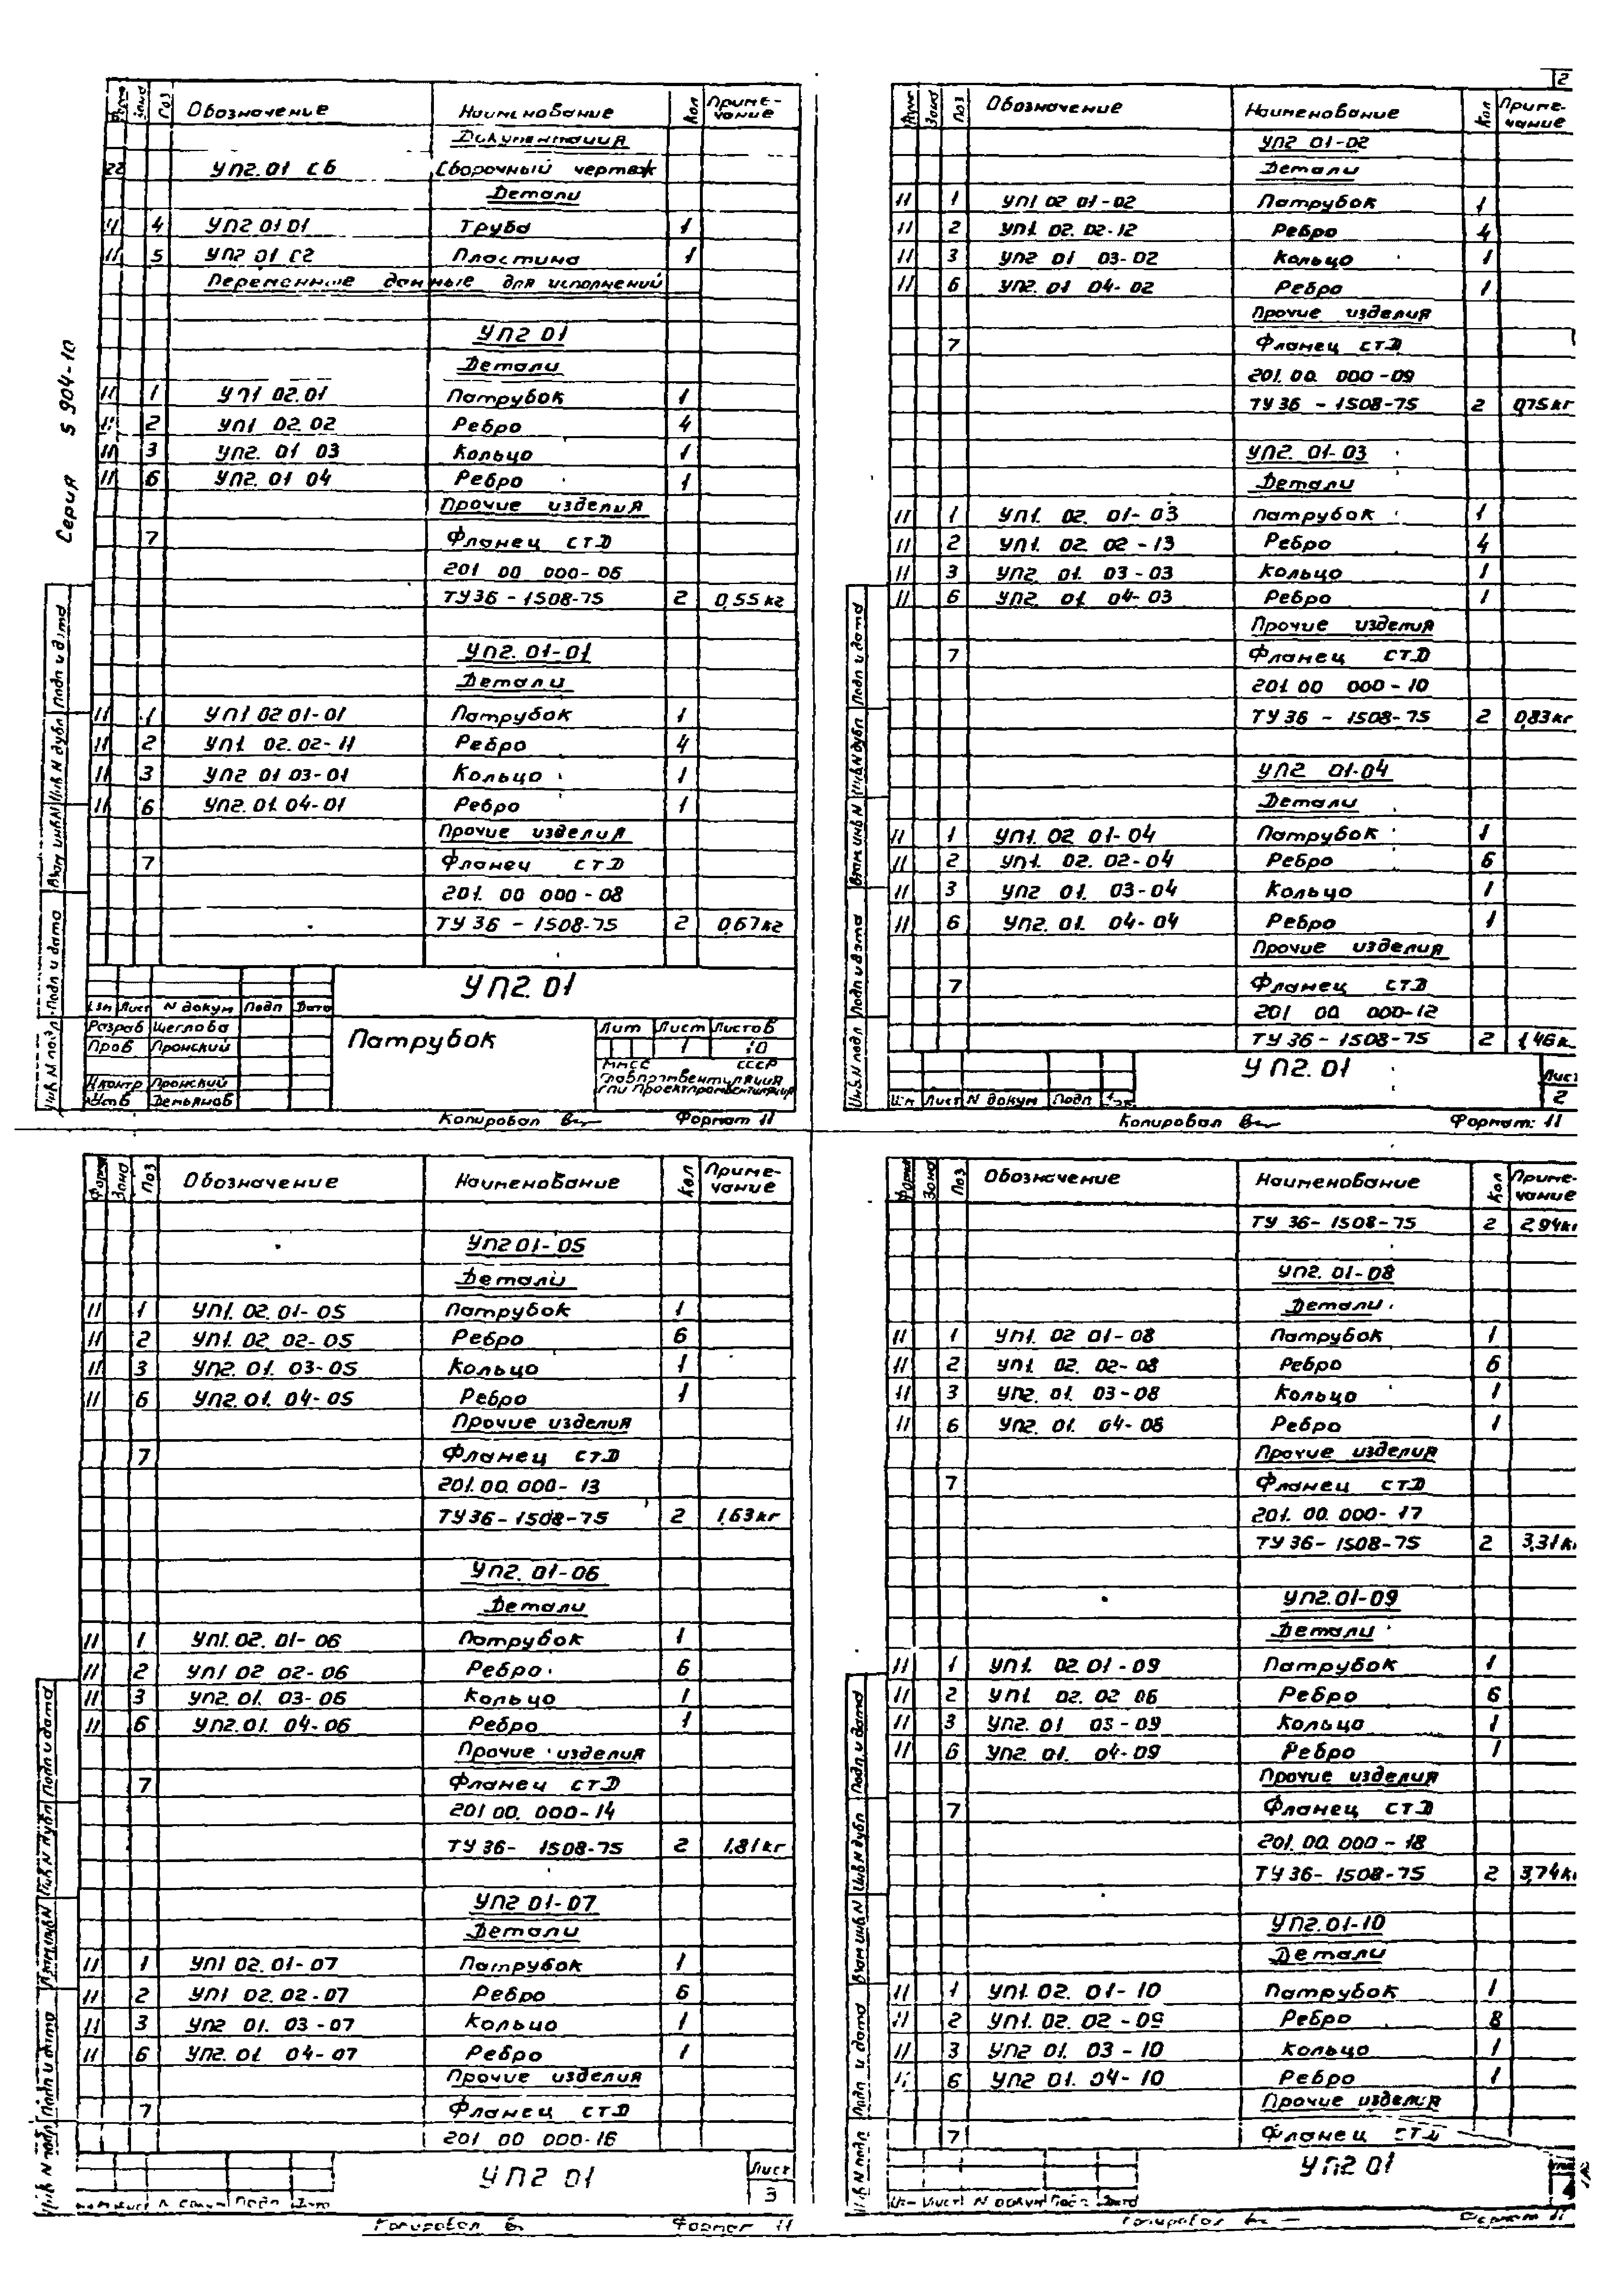 2
Серия 5 904-10
Форм Зона Поз Обозначение Наименование Кол Приме-чание
Документация
22 УП2.01 СБ Сборочный чертеж
Детали
11 4 УП2 01 01 Труба 1
11 5 УП2 01 02 Пластина 1
Переменные данные для исполнений
УП2 01
Детали
11 1 УП1 02.01 Патрубок 1
11 2 УП1 02.02 Ребро 4
11 3 УП2. 01 03 Кольцо 1
11 6 УП2. 01 04 Ребро 1
Прочие изделия
7 Фланец СТД
201 00 000-06
ТУ36-1508-75 2 0,55кг
УП2. 01-01
Детали
11 1 УП1 02 01-01 Патрубок 1
11 2 УП1 02.02-11 Ребро 4
11 3 УП2 01 03-01 Кольцо 1
11 6 УП2. 01. 04-01 Ребро 1
Прочие изделия
7 Фланец СТД
201. 00 000-08
ТУ 36-1508-75 2 0,67кг
УП2. 01
Изм Лист N докум Подп Дата
Разраб Щеглова
Пров Пронский
Н контр Пронский
Утв Демьянов
Патрубок
Лит Лист Листов
1 10
ММСС СССР
Главпромвентиляция
ГПИ Проектпромвентиляция
Инв N подл Подп и дата Взам инв N Инв N дубл Подп и дата
Копировал Формат 11
Форм Зона Поз Обозначение Наименование Кол Приме-чание
УП2 01-02
Детали
11 1 УП1 02 01-02 Патрубок 1
11 2 УП1. 02. 02-12 Ребро 4
11 3 УП2 01 03-02 Кольцо 1
11 6 УП2. 01 04-02 Ребро 1
Прочие изделия
7 Фланец СТД
201. 00. 000-09
ТУ 36-1508-75 2 0,75кг
УП2. 01-03
Детали
11 1 УП1. 02. 01-03 Патрубок 1
11 2 УП1. 02. 02-13 Ребро 4
11 3 УП2 01. 03-03 Кольцо 1
11 6 УП2. 01 04-03 Ребро 1
Прочие изделия
7 Фланец СТД
201. 00 000-10
ТУ 36-1508-75 2 0,83кг
УП2 01-04
Детали
11 1 УП1. 02 01-04 Патрубок 1
11 2 УП1. 02. 02-04 Ребро 6
11 3 УП2 01. 03-04 Кольцо 1
11 6 УП2. 01. 04-04 Ребро 1
Прочие изделия
7 Фланец СТД
201 00 000-12
ТУ 36-1508-75 2 1,46к
УП2. 01
Лист
2
Изм Лист N докум Подп
Инв. N подл Подп и дата Взам инв N Инв N дубл Подп и дата
Копировал Формат: 11
Форм Зона Поз Обозначение Наименование Кол Приме-чание
УП2 01-05
Детали
11 1 УП1. 02. 01-05 Патрубок 1
11 2 УП1. 02. 02-05 Ребро 6
11 3 УП2. 01. 03-05 Кольцо 1
11 6 УП2. 01. 04-05 Ребро 1
Прочие изделия
7 Фланец СТД
201. 00. 000-13
ТУ36-1508-75 2 1,63кг
УП2. 01-06
Детали
11 1 УП1. 02. 01-06 Патрубок 1
11 2 УП1 02 02-06 Ребро 6
11 3 УП2. 01. 03-06 Кольцо 1
11 6 УП2. 01. 04-06 Ребро 1
Прочие изделия
7 Фланец СТД
201 00. 000-14
ТУ 36-1508-75 2 1,81кг
УП2 01-07
Детали
11 1 УП1 02. 01-07 Патрубок 1
11 2 УП1 02. 02-07 Ребро 6
11 3 УП2 01. 03-07 Кольцо 1
11 6 УП2. 01 04-07 Ребро 1
Прочие изделия
7 Фланец СТД
201 00 000-16
УП2 01
Лист
3
Инв N подл Подп и дата Взам инв N Инв N дубл Подп и дата
Копировал Формат 11
Форма Зона Поз Обозначение Наименование Кол Приме-чание
ТУ 36-1508-75 2 2,94кг
УП2. 01-08
Детали
11 1 УП1. 02 01-08 Патрубок 1
11 2 УП1. 02. 02-08 Ребро 6
11 3 УП2. 01. 03-08 Кольцо 1
11 6 УП2. 01. 04-08 Ребро 1
Прочие изделия
7 Фланец СТД
201. 00. 000-17
ТУ 36-1508-75 2 3,31к
УП2. 01-09
Детали
11 1 УП1. 02 01-09 Патрубок 1
11 2 УП1 02. 02 06 Ребро 6
11 3 УП2. 01 03-09 Кольцо 1
11 6 УП2. 01. 04-09 Ребро 1
Прочие изделия
7 Фланец СТД
201. 00. 000-18
ТУ 36-1508-75 2 3,74к
УП2. 01-10
Детали
11 1 УП1. 02. 01-10 Патрубок 1
11 2 УП1. 02. 02-09 Ребро 8
11 3 УП2 01. 03-10 Кольцо 1
11 6 УП2 01. 04-10 Ребро 1
Прочие изделия
7 Фланец СТД
УП2 01
4
Лист N докум Подп Дата
Инв N подл Подп и дата Взам инв N Инв N дубл Подп. и дата
Копировал Формат 11